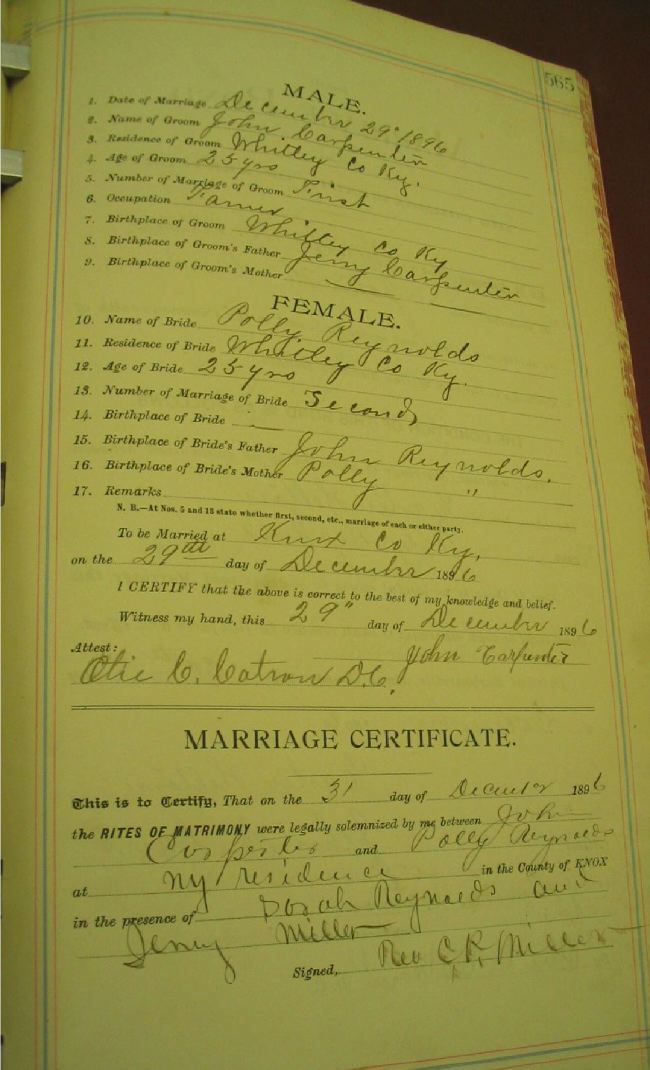 565
MALE.
1. Date of Marriage December 29" 1896
2. Name of Groom John Carpenter
3. Residence of Groom Whitley Co Ky.
4. Age of Groom 25 yrs
5. Number of Marriage of Groom First
6. Occupation Farmer
7. Birthplace of Groom Whitley Co Ky
8. Birthplace of Groom's Father Jerry Carpenter
9. Birthplace of Groom's Mother —
FEMALE.
10. Name of Bride Polly Reynolds
11. Residence of Bride Whitley Co Ky.
12. Age of Bride 25 yrs
13. Number of Marriage of Bride Second
14. Birthplace of Bride —
15. Birthplace of Bride's Father John Reynolds.
16. Birthplace of Bride's Mother Polly "
17. Remarks
N. B.—At Nos. 5 and 13 state whether first, second, etc., marriage of each or either party.
To be Married at Knox Co Ky.
on the 29th day of December 1896
I CERTIFY that the above is correct to the best of my knowledge and belief.
Witness my hand, this 29" day of December 1896
Attest: John Carpenter
Otis C. Catron D.C.
MARRIAGE CERTIFICATE.
This is to Certify, That on the 31 day of December 1896
the RITES OF MATRIMONY were legally solemnized by me between John
Carpenter and Polly Reynolds
at my residence in the County of KNOX
in the presence of Sarah Reynolds and
Miller
Signed, Rev C R, Miller